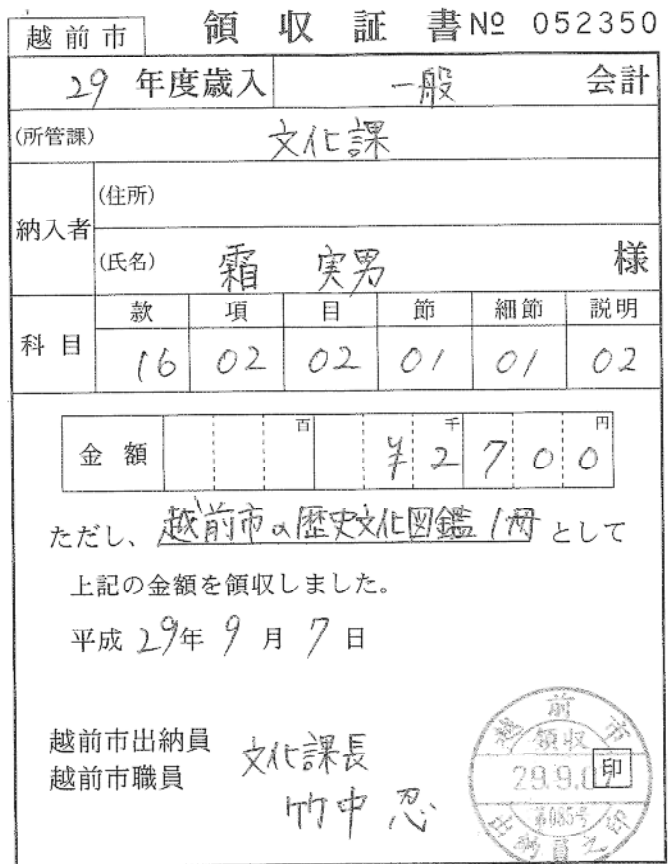 越前市 領収証書 № 052350
29 年度歳入 一般 会計
(所管課) 文化課
納入者 (住所)
(氏名) 霜 実男 様
科目 款 項 目 節 細節 説明
16 02 02 01 01 02
百 千 円
金額 ¥2700
ただし、越前市の歴史文化図鑑1冊として
上記の金額を領収しました。
平成 29年 9月 7日
越前市出納員 文化課長
越前市職員 竹中 忍
越前市
領収
29.9.07
印
第085号
出納員之印